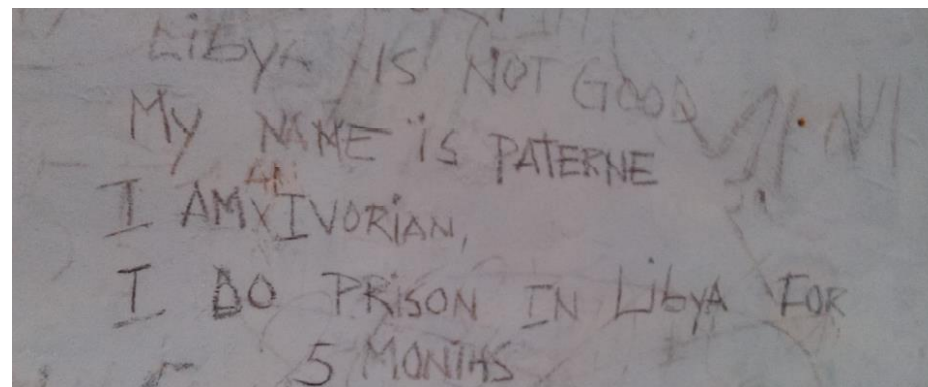 Libya IS NOT GOOD
My NAME is PATERNE
AN
I AM IVORIAN,
I DO PRISON IN LibyA FOR
5 MONTHS